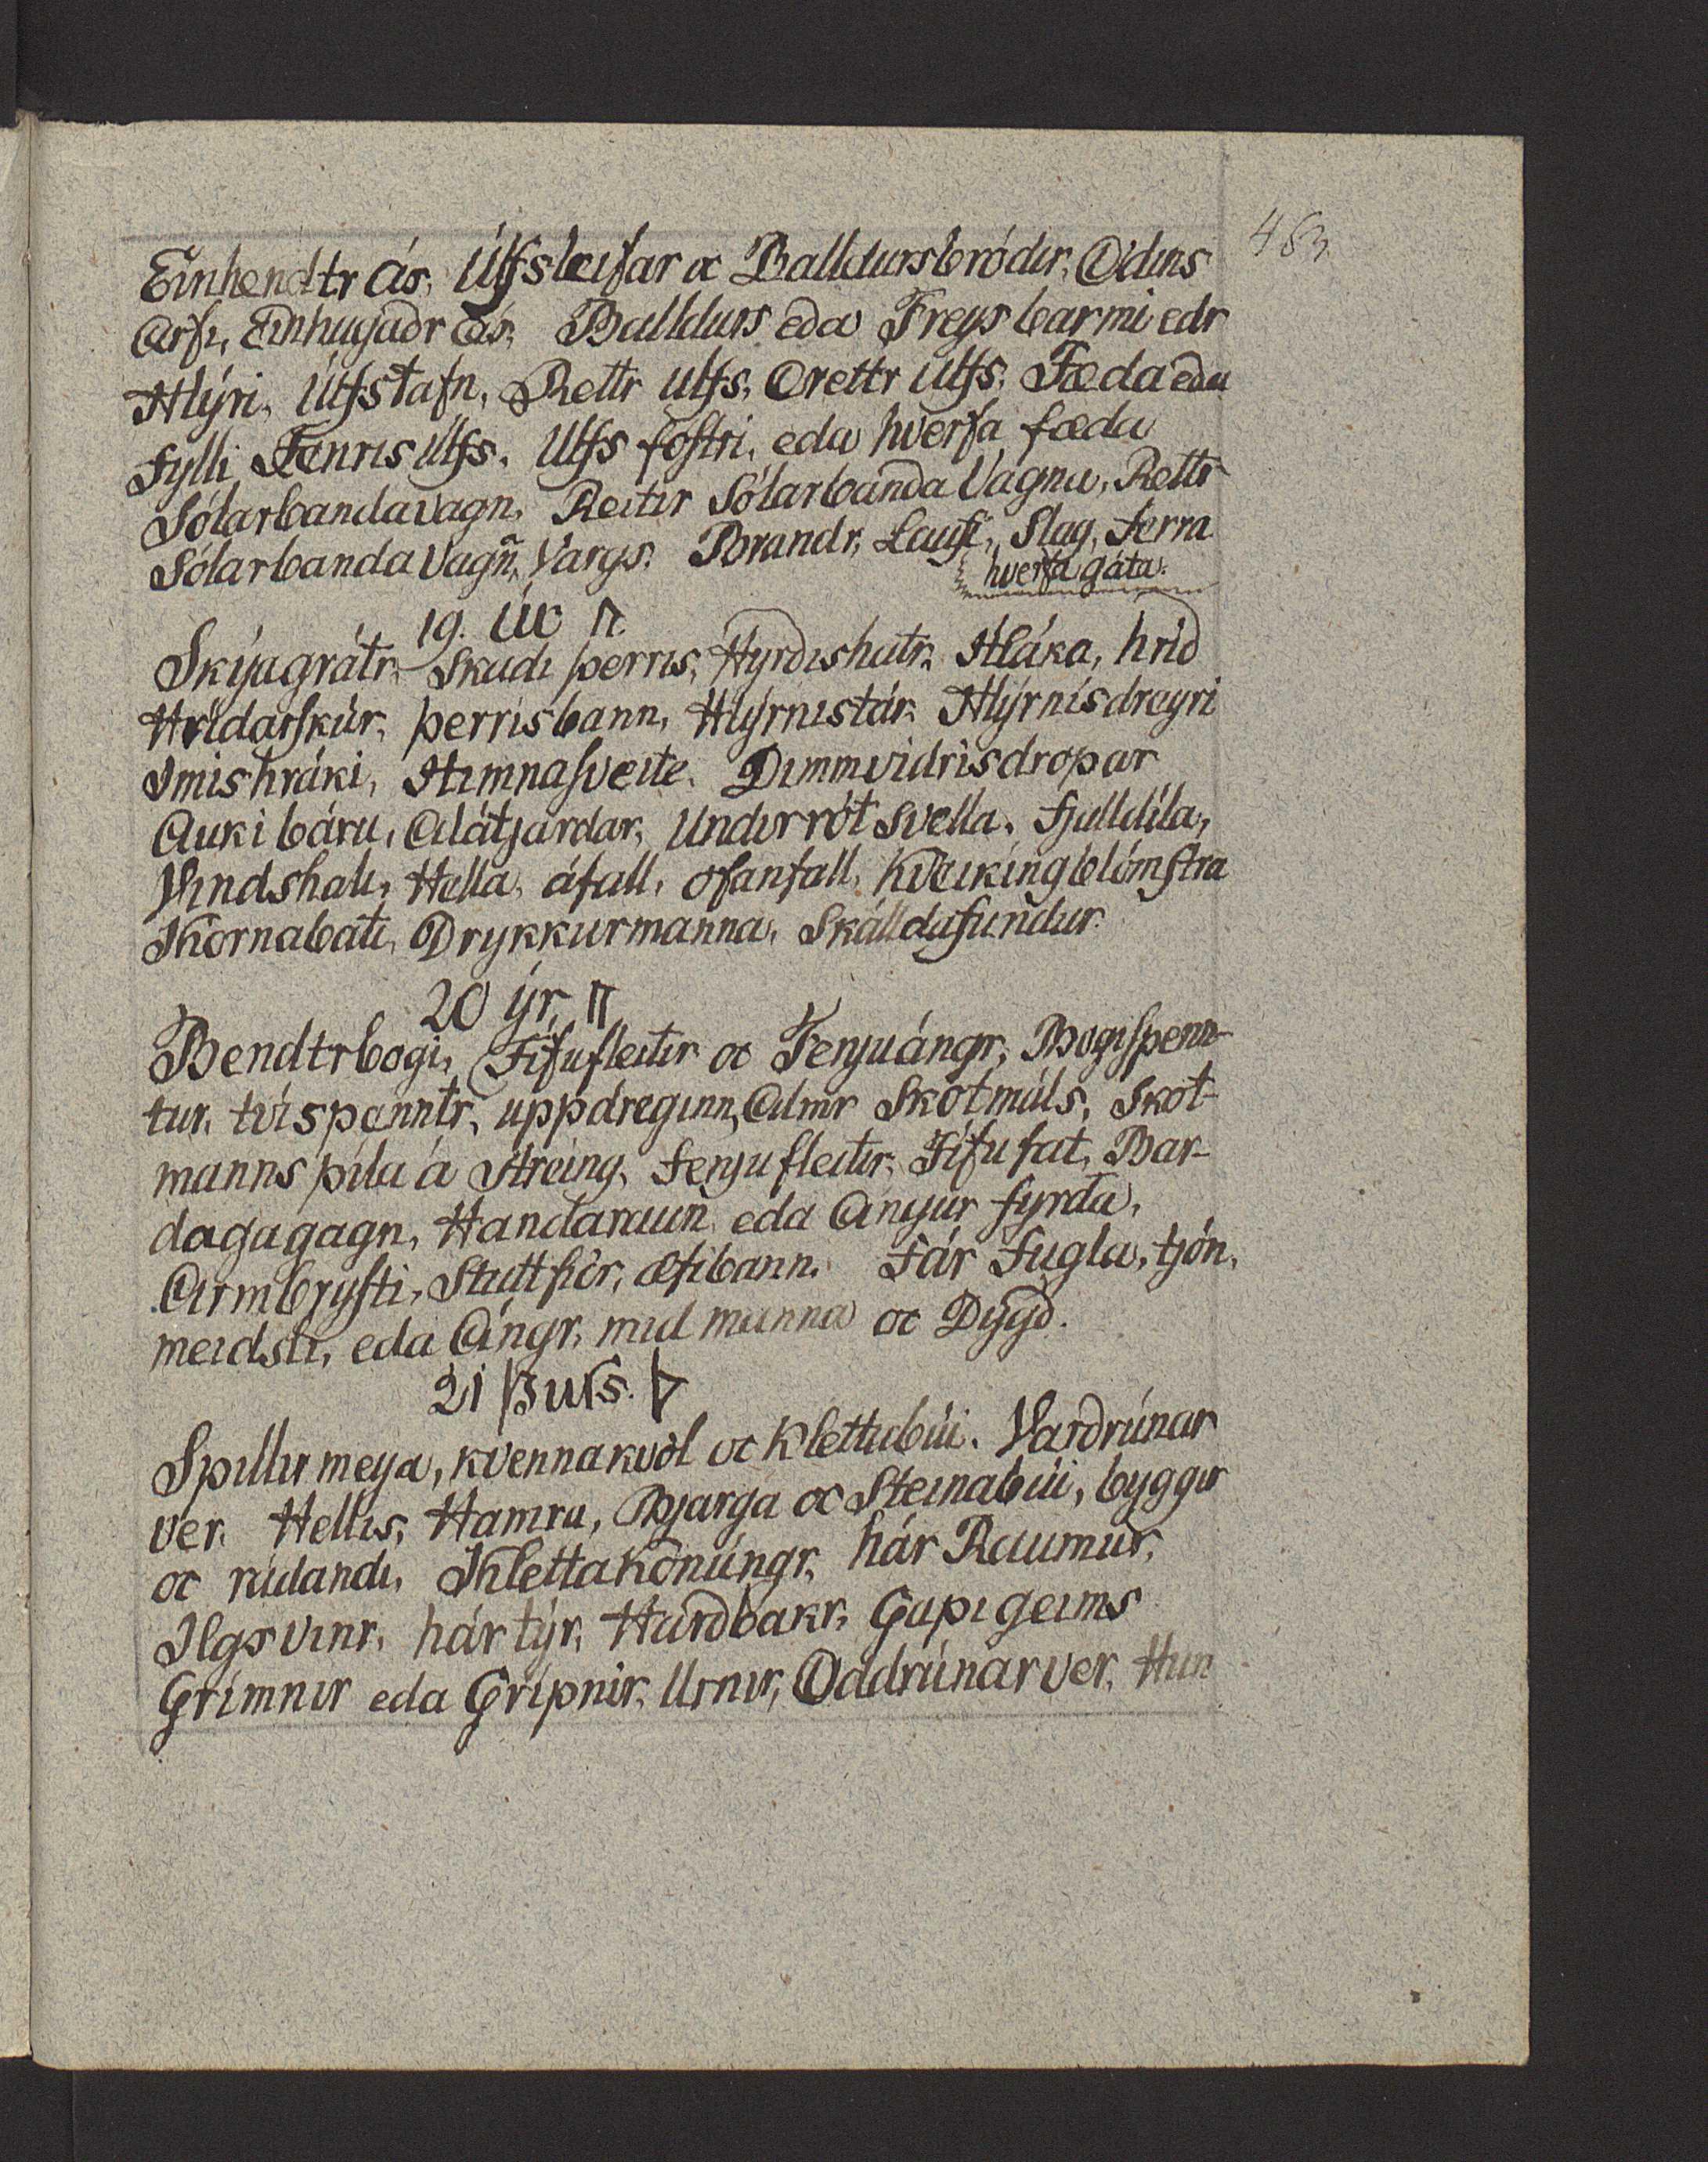 483
Einhendtr ás, Úlfsleifar oc Balldursbródir, Odins
Arfi, Einhugadr ás, Balldurs eda Freysbarmi edr
Hlýri, Úlfstafn, Rettr ulfs, Orettr ulfs, Fæda eda
Fylli Fenrisúlfs, Ulfs fóstri, eda hverfa fæda
Sólarbandavagn, Reitir Sólarbanda Vagna, Rettr
Sólarbanda Vagn̄, Vargs. Brandr, Laufi, Slag, Ferra
hverfa gáta.
19. Úr ᚢ
Skýagrátr, Skadi þerris, Hyrdishatr, Hláka, hrid
Hrídarskúr, þerrisbann, Hlýrnistár, Hlýrnisdreyri
Imishráki, Himnasveite, Dimmvidrisdropar
Auki báru, Alátjardar, Undirrót svella, Fjalldila,
Vindshali, Hella, áfall, ofanfall, kveiking blómstra
Kornabati, Drykkurmanna, Skálldafundur.
20 ýr,
Bendtrbogi, Fífufleitir oc Fenjuángr, Bogispenn-
tur, tvíspenntr, uppdreginn, Almr Skotmáls, Skot-
manns píla á Streing, Fenjufleitir, Fífu fat, Bar-
dagagagn, Handaraun eda Angur fyrda,
Armbrysti, Stuttfiör, æfibann. Fár Fugla, tjón,
meidsli, eda Ángr, mid manna oc Dygd.
21 Þurs. ᚦ
Spillir meya, kvennakvöl oc Klettabúi. Vardrúnar
ver. Hellis, Hamra, Bjarga oc Steinabúi, byggir
oc rádandi, Klettakonúngr, hár Raumur,
Ilgsvinr, hártýr, Hardbakr, Gapi geims
Grímnir eda Grípnir, Urnir, Oddrúnarver, Hun